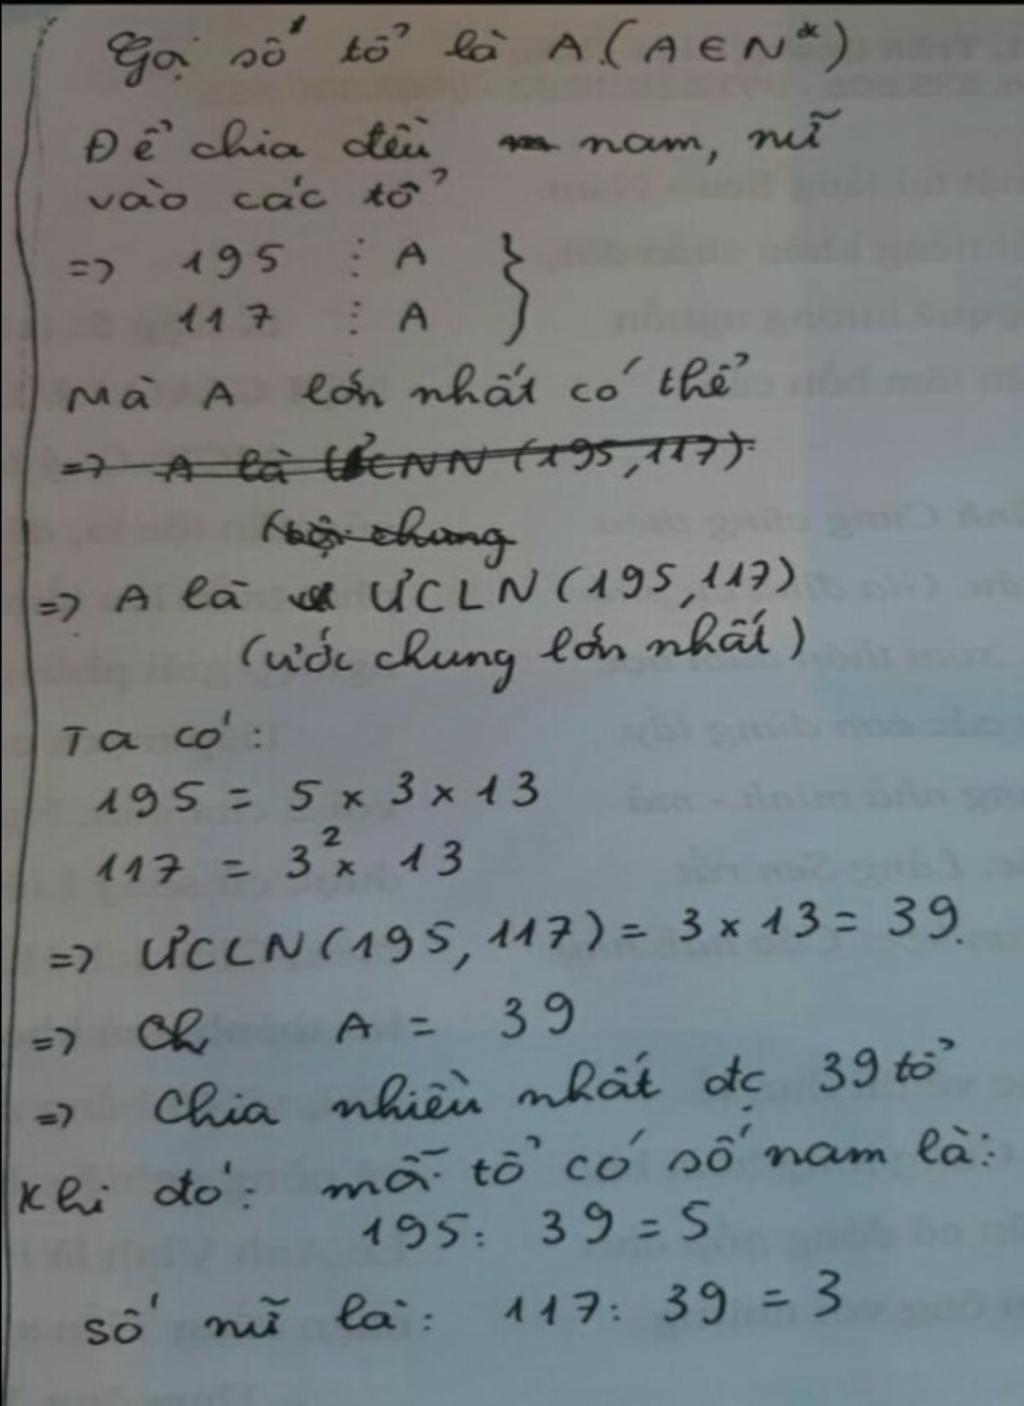 Gọi số tổ là A.(A∈N*)
Để chia đều nam, nữ
vào các tổ
=> 195 ⋮ A }
117 ⋮ A
Mà A lớn nhất có thể
=> A là ƯCNN (195,117).
chung
=> A là ƯCLN (195,117)
(ước chung lớn nhất)
Ta có:
195 = 5 x 3 x 13
117 = 3² x 13
=> ƯCLN(195, 117) = 3 x 13 = 39.
=> A = 39
=> Chia nhiều nhất đc 39 tổ
Khi đó: mỗi tổ có số nam là:
195: 39 = 5
số nữ là: 117: 39 = 3